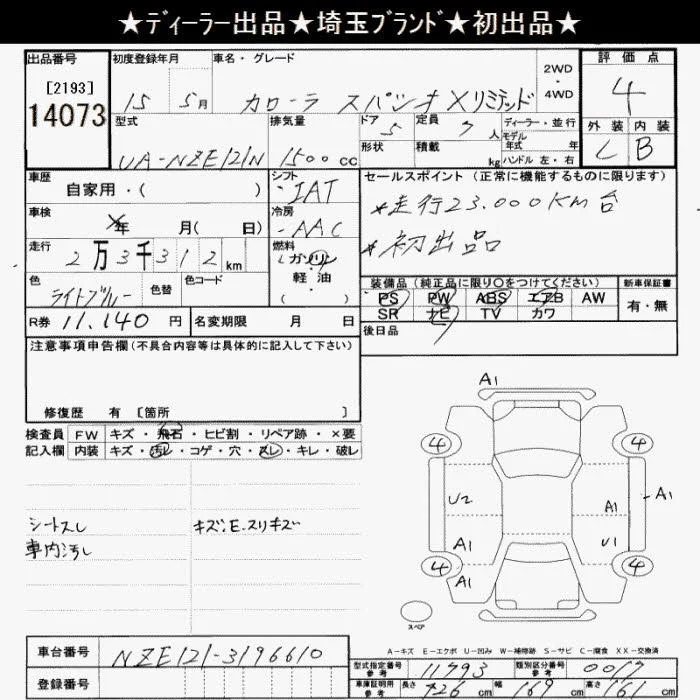 ★ディーラー出品★埼玉ブランド★初出品★
出品番号 初度登録年月 車名・グレード 2WD・4WD 評価点
[2193] 15 5月 カローラ スパシオ Xリミテッド 4
14073
型式 排気量 ドア 5 定員 7人 ディーラー・並行 外装 内装
UA-NZE121N 1500cc 形状 積載 kg モデル年式 年 C B
ハンドル 左・右
車歴 シフト セールスポイント (正常に機能するものに限ります)
自家用・( ) IAT
＊走行23.000KM台
車検 年 月( 日) 冷房 AAC
＊初出品
走行 2万3千312km 燃料 ガソリン
軽油
( )
色 ライトブルー 色替 色コード
装備品 (純正品に限り○をつけてください) 新車保証書
PS PW ABS エアB AW 有・無
SR ナビ TV カワ
R券 11.140円 名変期限 月 日
後日品
注意事項申告欄(不具合内容等は具体的に記入して下さい)
修復歴 有 [箇所 ]
検査員 FW キズ・飛石・ヒビ割・リペア跡・×要
記入欄 内装 キズ・汚レ・コゲ・穴・スレ・キレ・破レ
シートスレ
車内汚レ
キズ、E.スリキズ
A1
4 4
U2 A1 A1
A1 U1
4 4
A1
スペア
A-キズ E-エクボ U-凹み W-補修跡 S-サビ C-腐食 XX-交換済
車台番号 NZE121-3196610
登録番号
型式指定番号 参考 11793 類別区分番号 参考 0017
車庫証明用 参考 長さ 426cm 幅 169cm 高さ 161cm